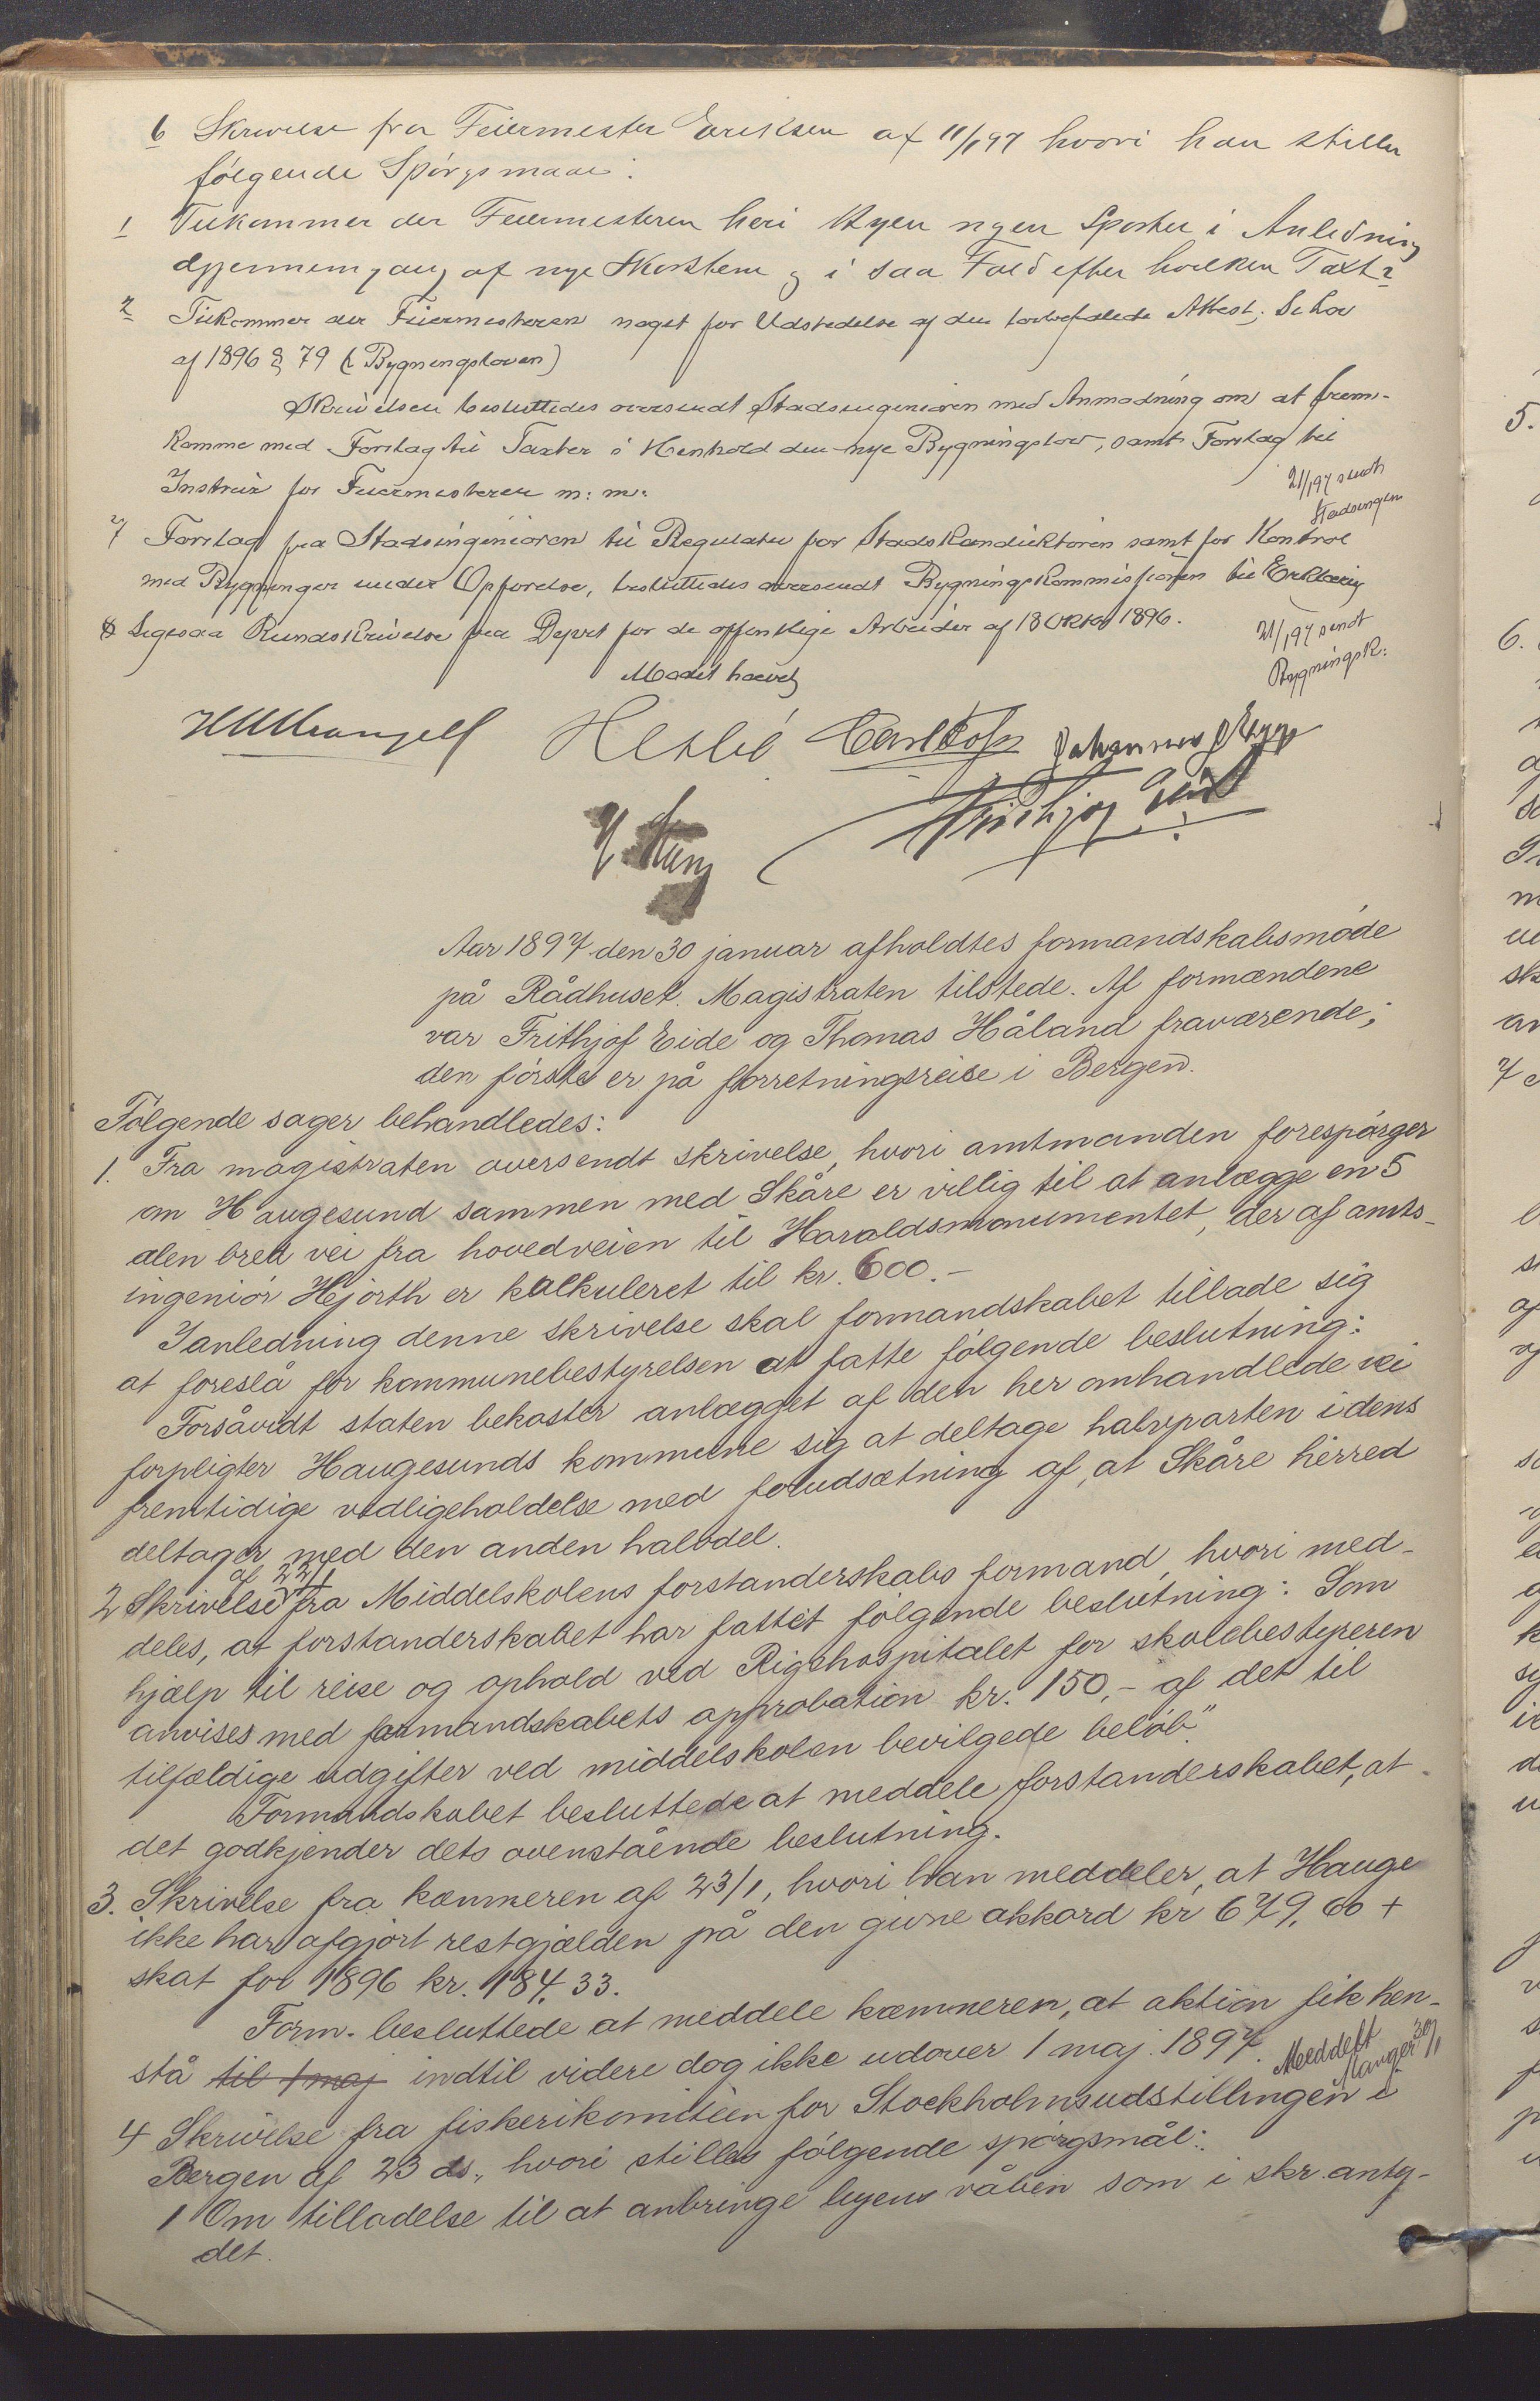 6 Skrivelse fra Feiermester Eriksen af 11/1 97 hvori han stiller
følgende Spørgsmaal:
1 Tilkommer der Feiermesteren heri Byen nogen Sportel i Anledning
Gjennemgang af nye Skorstene og i saa Fald efter hvilken Taxt?
2 Tilkommer der Feiermesteren noget for Udstedelse af den Attest. Se Lov
af 1896 § 79 (Bygningsloven)
Skrivelsen besluttedes oversendt Stadsingeniøren med Anmodning om at frem-
komme med Forslag til Taxter i Henhold den nye Bygningslov, samt Forslag til
Instrux for Feiermesteren m: m:
21/1 97 sendt
Stadsingen
7 Forslag fra Stadsingeniøren til Regulativ for Stadskonduktøren samt for Kontrol
med Bygninger under Opførelse, besluttedes oversendt Bygningskommissionen til Erklæring
8 Ligesaa Rundskrivelse fra Depet for de offentlige Arbeider af 18 Oktbr 1896.
21/1 97 sendt
Bygningsk:
Mødet hævet
Carl Johannes
Frithjof Eide
Aar 1897 den 30 januar afholdtes formandskabsmøde
på Rådhuset. Magistraten tilstede. Af formændene
var Frithjof Eide og Thomas Håland fraværende;
den første er på forretningsreise i Bergen.
Følgende sager behandledes:
1. Fra magistraten oversendt skrivelse, hvori amtmanden forespørger
om Haugesund sammen med Skåre er villig til at anlægge en 5
alen bred vei fra hovedveien til Haraldsmonumentet, der af amts-
ingeniør Hjorth er kalkuleret til kr. 600.-
I anledning denne skrivelse skal formandskabet tillade sig
at foreslå for kommunebestyrelsen at fatte følgende beslutning:
Forsåvidt staten bekoster anlægget af den her omhandlede vei
forpligter Haugesunds kommune sig at deltage halvparten i dens
fremtidige vedligeholdelse med forudsætning af, at Skåre herred
deltager med den anden halvdel.
2 Skrivelse af 22/1 fra Middelskolens forstanderskabs formand, hvori med-
deles, at forstanderskabet har fattet følgende beslutning: Som
hjælp til reise og ophold ved Rigshospitalet for skolebestyreren
anvises med formandskabets approbation kr. 150,- af det til
tilfældige udgifter ved middelskolen bevilgede beløb."
Formandskabet besluttede at meddele forstanderskabet, at
det godkjender dets ovenstående beslutning.
3. Skrivelse fra kæmneren af 23/1, hvori han meddeler, at Hauge
ikke har afgjort restgjælden på den givne akkord kr 679,60 +
skat for 1896 kr. 184,33.
Form. besluttede at meddele kæmneren, at aktion fik hen-
stå til 1 maj indtil videre dog ikke udover 1 maj 1897.
Meddelt 30/1
4 Skrivelse fra fiskerikomiteen for Stockholmsudstillingen i
Bergen af 23 ds., hvori stilles følgende spørgsmål:
1 Om tilladelse til at anbringe byens våben som i skr. anty-
det.